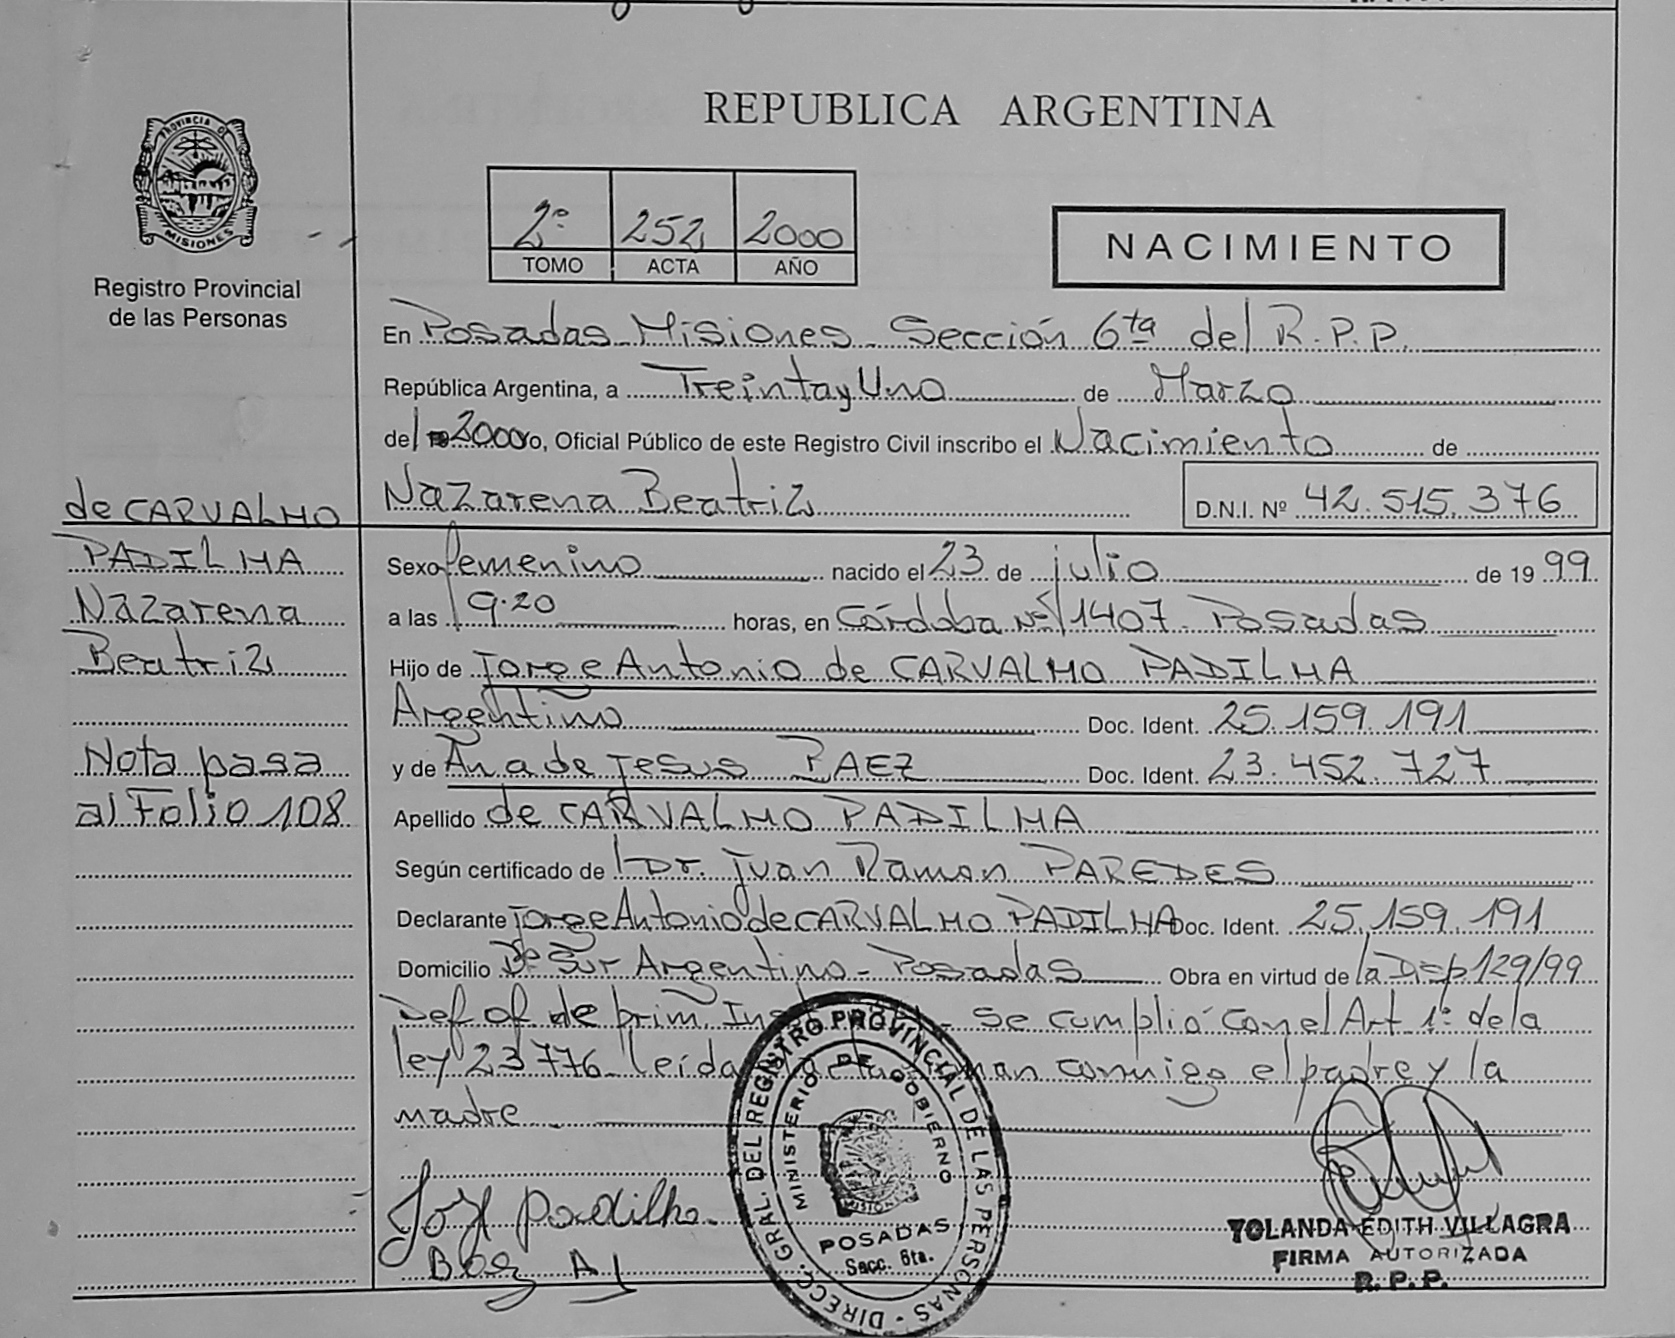 REPUBLICA ARGENTINA
PROVINCIA DE
MISIONES
Registro Provincial
de las Personas
2º 252 2000
TOMO ACTA AÑO
NACIMIENTO
En Posadas Misiones Sección 6ta del R.P.P.
República Argentina, a Treinta y Uno de Marzo
del 2000 yo, Oficial Público de este Registro Civil inscribo el Nacimiento de
Nazarena Beatriz D.N.I. Nº 42.515.376
de CARVALHO
PADILHA
Nazarena
Beatriz
Nota pasa
al Folio 108
Sexo femenino nacido el 23 de julio de 1999
a las 9.20 horas, en Córdoba Nº 1407 Posadas
Hijo de Jorge Antonio de CARVALHO PADILHA
Argentino Doc. Ident. 25.159.191
y de Ana de Jesus Doc. Ident. 23.452.727
Apellido de CARVALHO PADILHA
Según certificado de Dr. Juan Ramon PAREDES
Declarante Jorge Antonio de CARVALHO PADILHA Doc. Ident. 25.159.191
Domicilio Bº Sur Argentino - Posadas Obra en virtud de la Disp 129/99
Def of de prim. - Se cumplió con el Art 1º de la
ley 23776 Leída conmigo el padre y la
madre
Padilha
DIRECC. GRAL. DEL REGISTRO PROVINCIAL DE LAS PERSONAS -
MINISTERIO DE GOBIERNO
POSADAS
Secc. 6ta.
YOLANDA EDITH VILLAGRA
FIRMA AUTORIZADA
R.P.P.